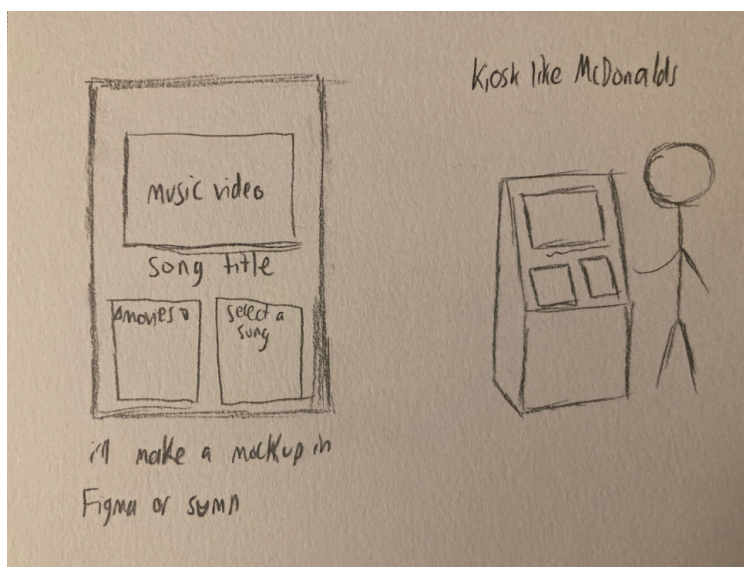 music video
song title
movies
select a
song
i'll make a mockup in
Figma or sumn
Kiosk like McDonalds